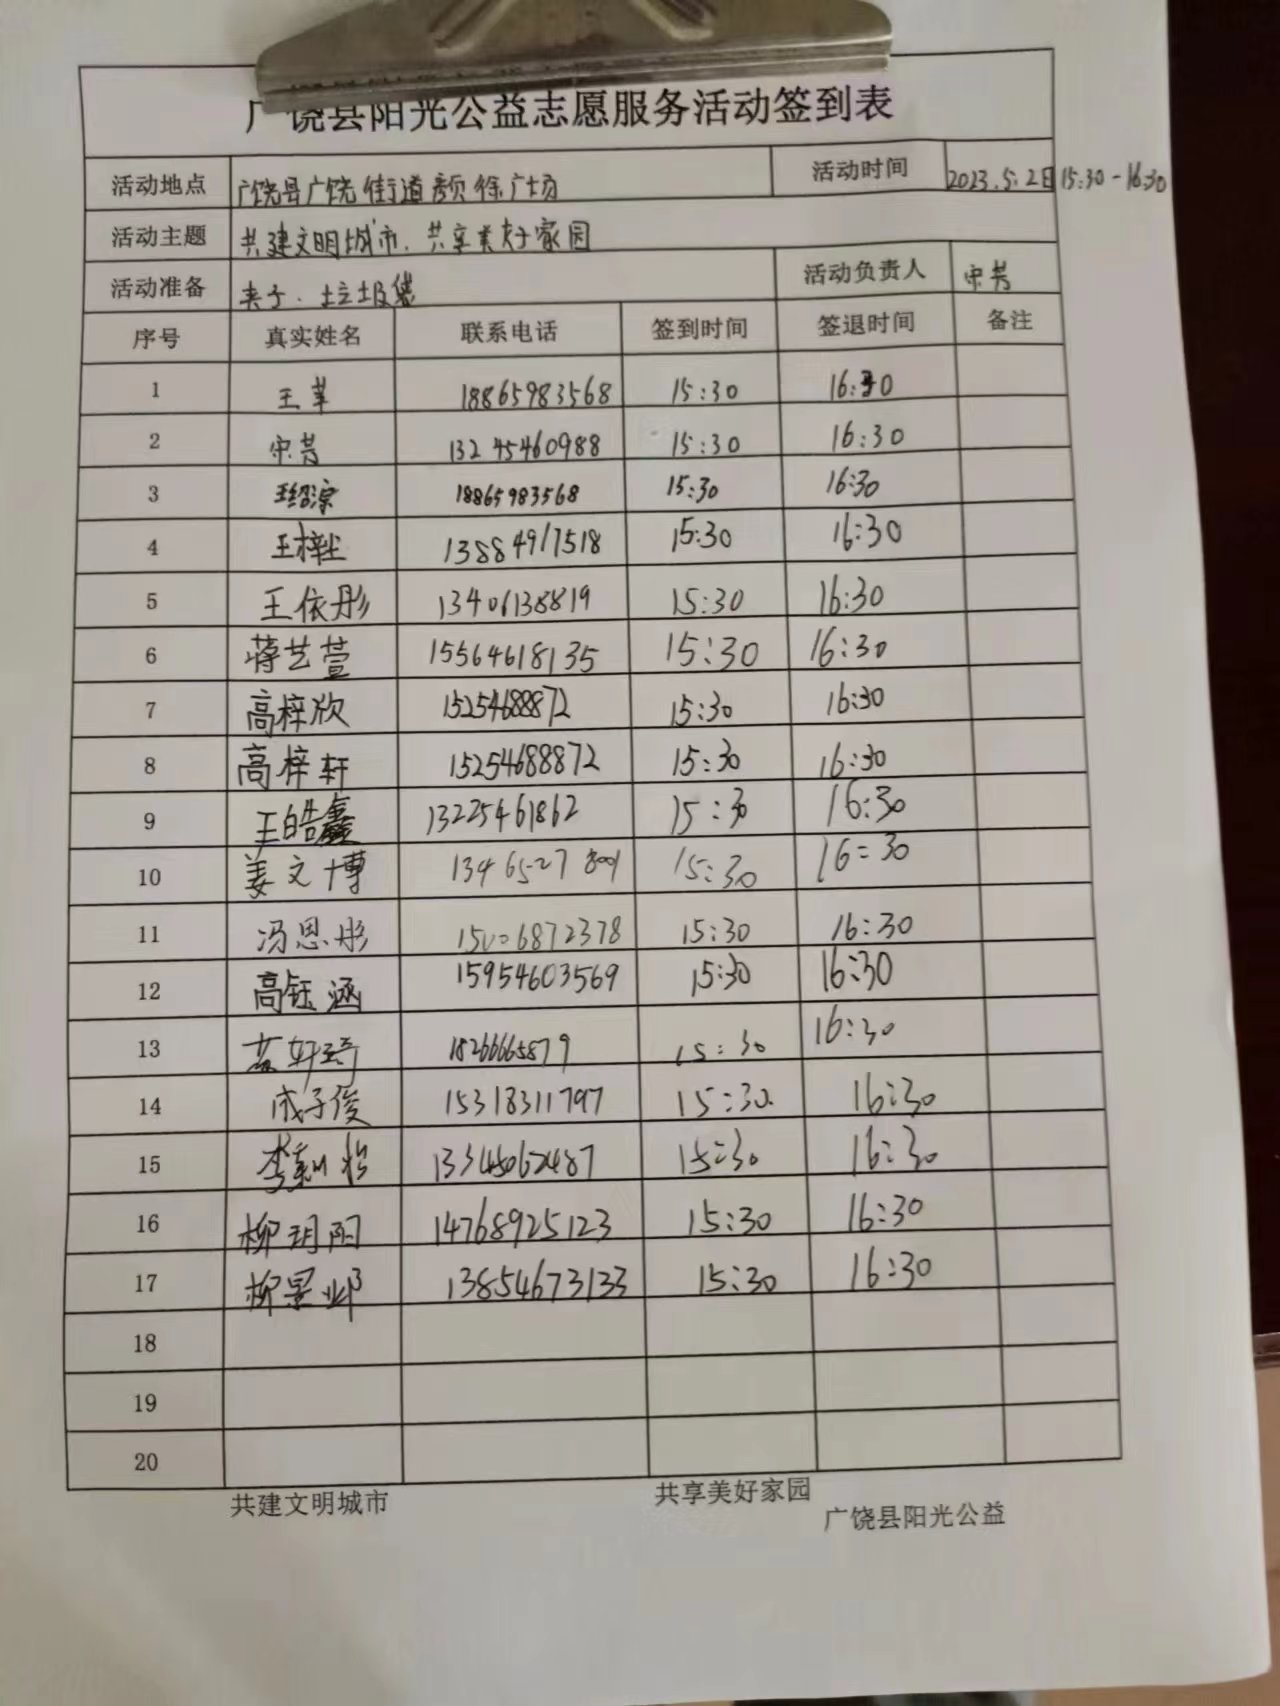 广饶县阳光公益志愿服务活动签到表
活动地点 广饶县广饶街道颜徐广场 活动时间 2023.5.2日15:30-16:30
活动主题 共建文明城市、共享美好家园
活动准备 夹子、垃圾袋 活动负责人 宋芳
序号 真实姓名 联系电话 签到时间 签退时间 备注
1 王苹 18865983568 15:30 16:30
2 宋芳 13245460988 15:30 16:30
3 18865983568 15:30 16:30
4 13884917518 15:30 16:30
5 王依彤 13406138819 15:30 16:30
6 蒋艺萱 15564618135 15:30 16:30
7 高梓欣 15254688872 15:30 16:30
8 高梓轩 15254688872 15:30 16:30
9 王皓鑫 13225461862 15:30 16:30
10 姜文博 15:30 16:30
11 冯思彤 15:30 16:30
12 高钰涵 15954603569 15:30 16:30
13 18266665879 15:30 16:30
14 成子俊 15318311797 15:30 16:30
15 15:30 16:30
16 柳玥阳 14768925123 15:30 16:30
17 柳景邺 13854673133 15:30 16:30
18
19
20
共建文明城市 共享美好家园
广饶县阳光公益